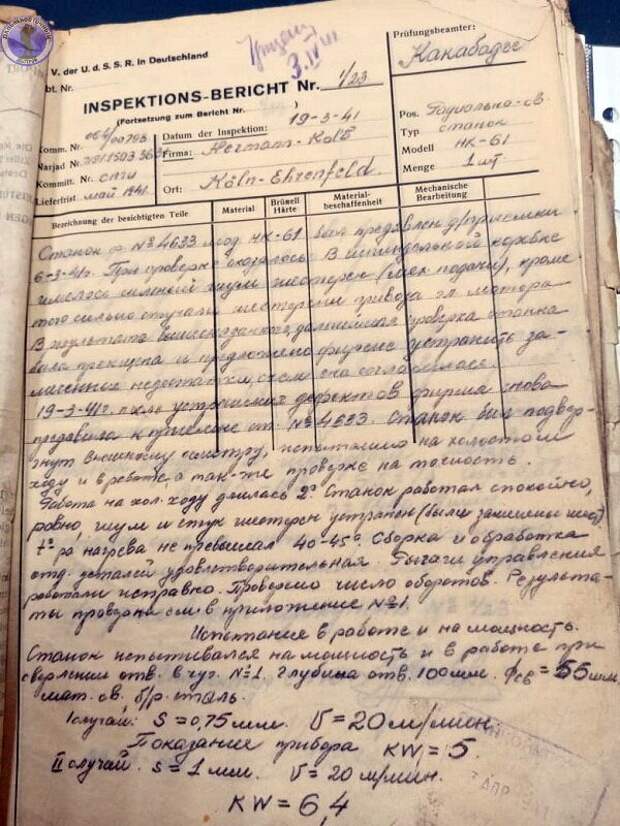 V. der U.d.S.S.R. in Deutschland
bt. Nr.
3.IV
INSPEKTIONS-BERICHT Nr. 1/23
(Fortsetzung zum Bericht Nr. )
Prüfungsbeamter:
Komm. Nr.
Datum der Inspektion: 19-3-41
Narjad Nr.
Firma: Hermann-Kolb
Kommitt. Nr.
Lieferfrist май 1941
Ort: Köln-Ehrenfeld.
Pos. Радиально-св.
Typ станок
Modell НК-61
Menge 1 шт
Bezeichnung der besichtigten Teile
Material
Brünell Härte
Material-beschaffenheit
Mechanische Bearbeitung
Станок ф. №4633 мод. НК-61 был предъявлен д/приемки
6-3-41г. При проверке оказалось: В шпиндельной коробке
имелся сильный шум шестерен (мех. подачи), кроме
того сильно стучали шестерни привода эл. мотора
В результате вышесказанного дальнейшая проверка станка
была прекращена и предложено фирме устранить за-
меченные недостатки, с чем она согласилась.
19-3-41г. после устранения дефектов фирма снова
предъявила к приемке ст. №4633. Станок был подвер-
гнут внешнему осмотру, испытанию на холостом
ходу и в работе, а так-же проверке на точность.
Работа на хол. ходу длилась 2ч. Станок работал спокойно,
ровно, шум и стук шестерен устранен (были заменены шест)
t° ра нагрева не превышал 40-45°. Сборка и обработка
отд. деталей удовлетворительная. Рычаги управления
работали исправно. Проверено число оборотов. Результа-
ты проверки см. в приложение №1.
Испытание в работе и на мощность.
Станок испытывался на мощность и в работе при
сверлении отв. в чуг. №1. Глубина отв. 100мм. ϕсв = 55мм,
мат. св. б/р. сталь.
I случай: S = 0,75мм. V = 20м/мин.
Показание прибора KW = 5.
II случай. s = 1мм. V = 20м/мин.
KW = 6,4